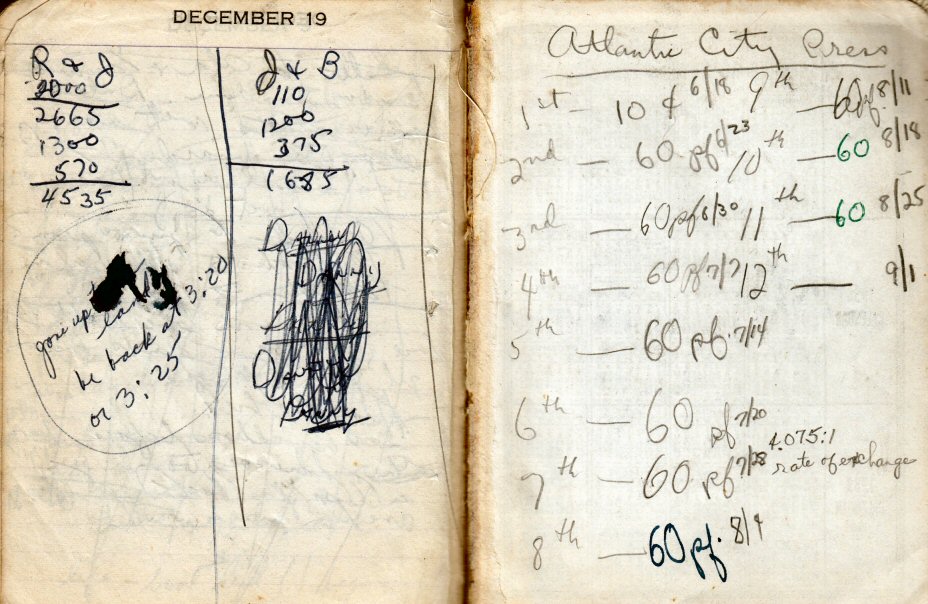 DECEMBER 19
R & J
2000
2665
1300
570
4535
gone up
be back at 3:20
or 3:25
J & B
110
1200
375
1685
Danny
Danny
Atlantic City Press
1st — 10 ¢ 6/18
2nd — 60 pf 6/23
3rd — 60 pf 6/30
4th — 60 pf 7/7
5th — 60 pf. 7/14
6th — 60 pf 7/20
7th — 60 pf 7/28
4.075:1
rate of exchange
8th — 60 pf. 8/4
9th — 60 pf. 8/11
10th — 60 8/18
11th — 60 8/25
12th — 9/1